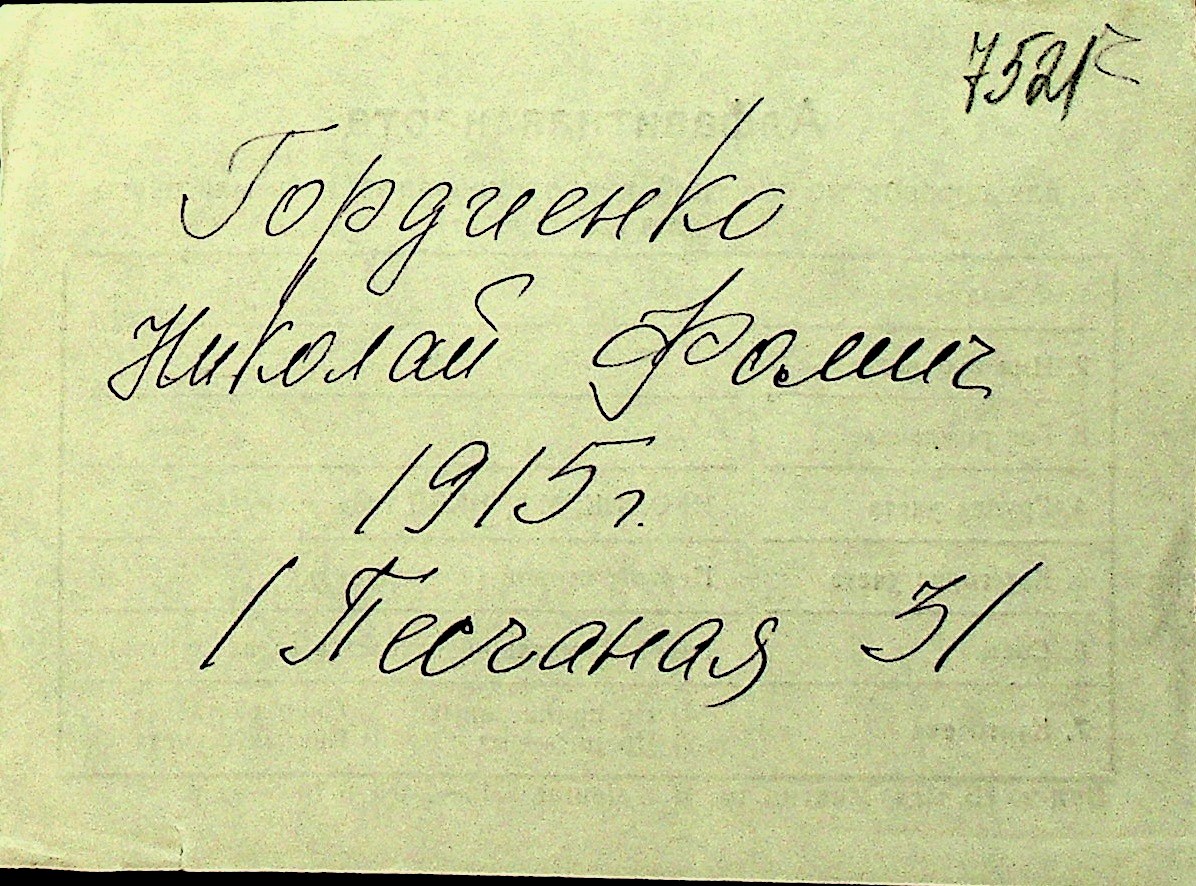 7521
Гордиенко
Николай Фомич
1915 г.
/ Песчаная 3/